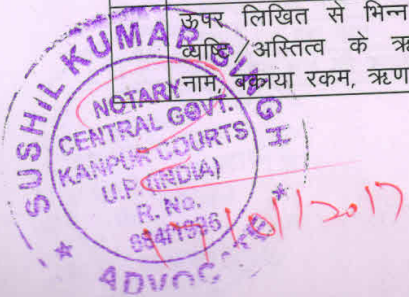 ऊपर लिखित से भिन्न
व्यष्टि/अस्तित्व के
नाम, बकाया रकम, ऋण
SUSHIL KUMAR SINGH
NOTARY
CENTRAL GOVT.
KANPUR COURTS
U.P. (INDIA)
R. No.
ADVOC